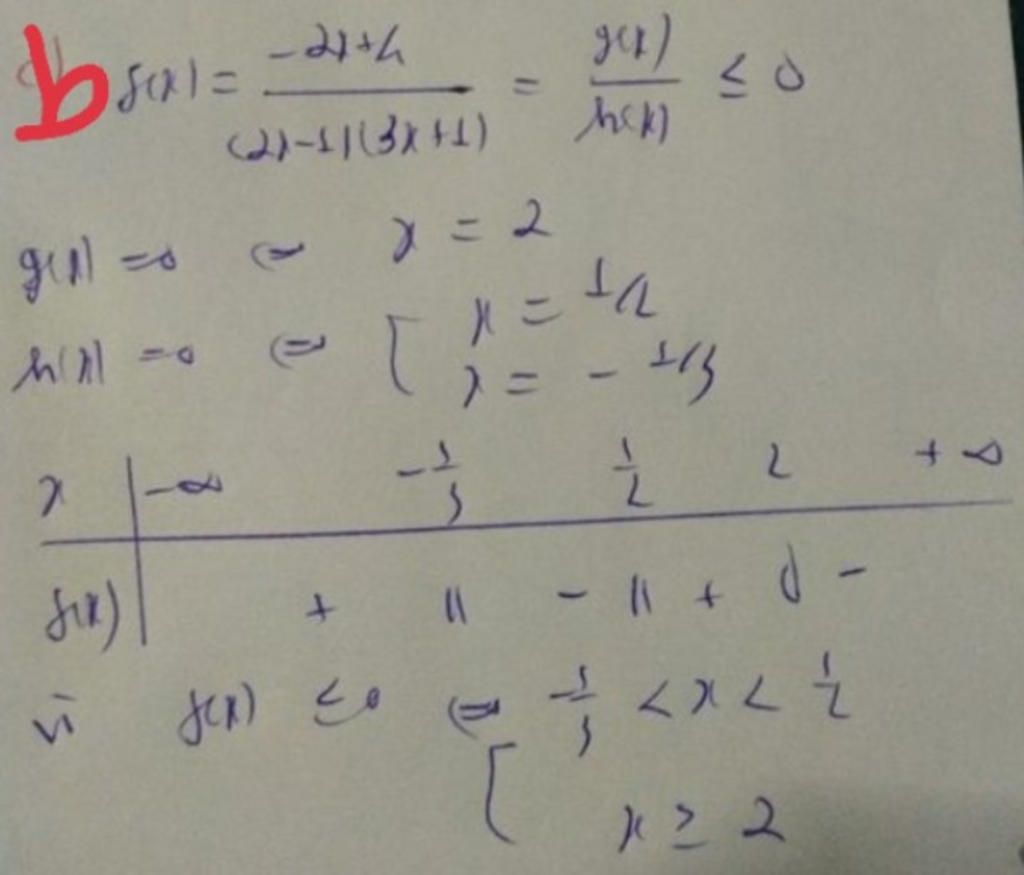 b f(x) = \frac{-2x+4}{(2x-1)(3x+1)} = \frac{g(x)}{h(x)} ≤ 0
g(x) = 0 ⇔ x = 2
h(x) = 0 ⇔ [ x = 1/2
x = -1/3
x | -∞ -\frac{1}{3} \frac{1}{2} 2 +∞
f(x) | + || - || + 0 -
vì f(x) ≤ 0 ⇔ [ -\frac{1}{3} < x < \frac{1}{2}
x ≥ 2